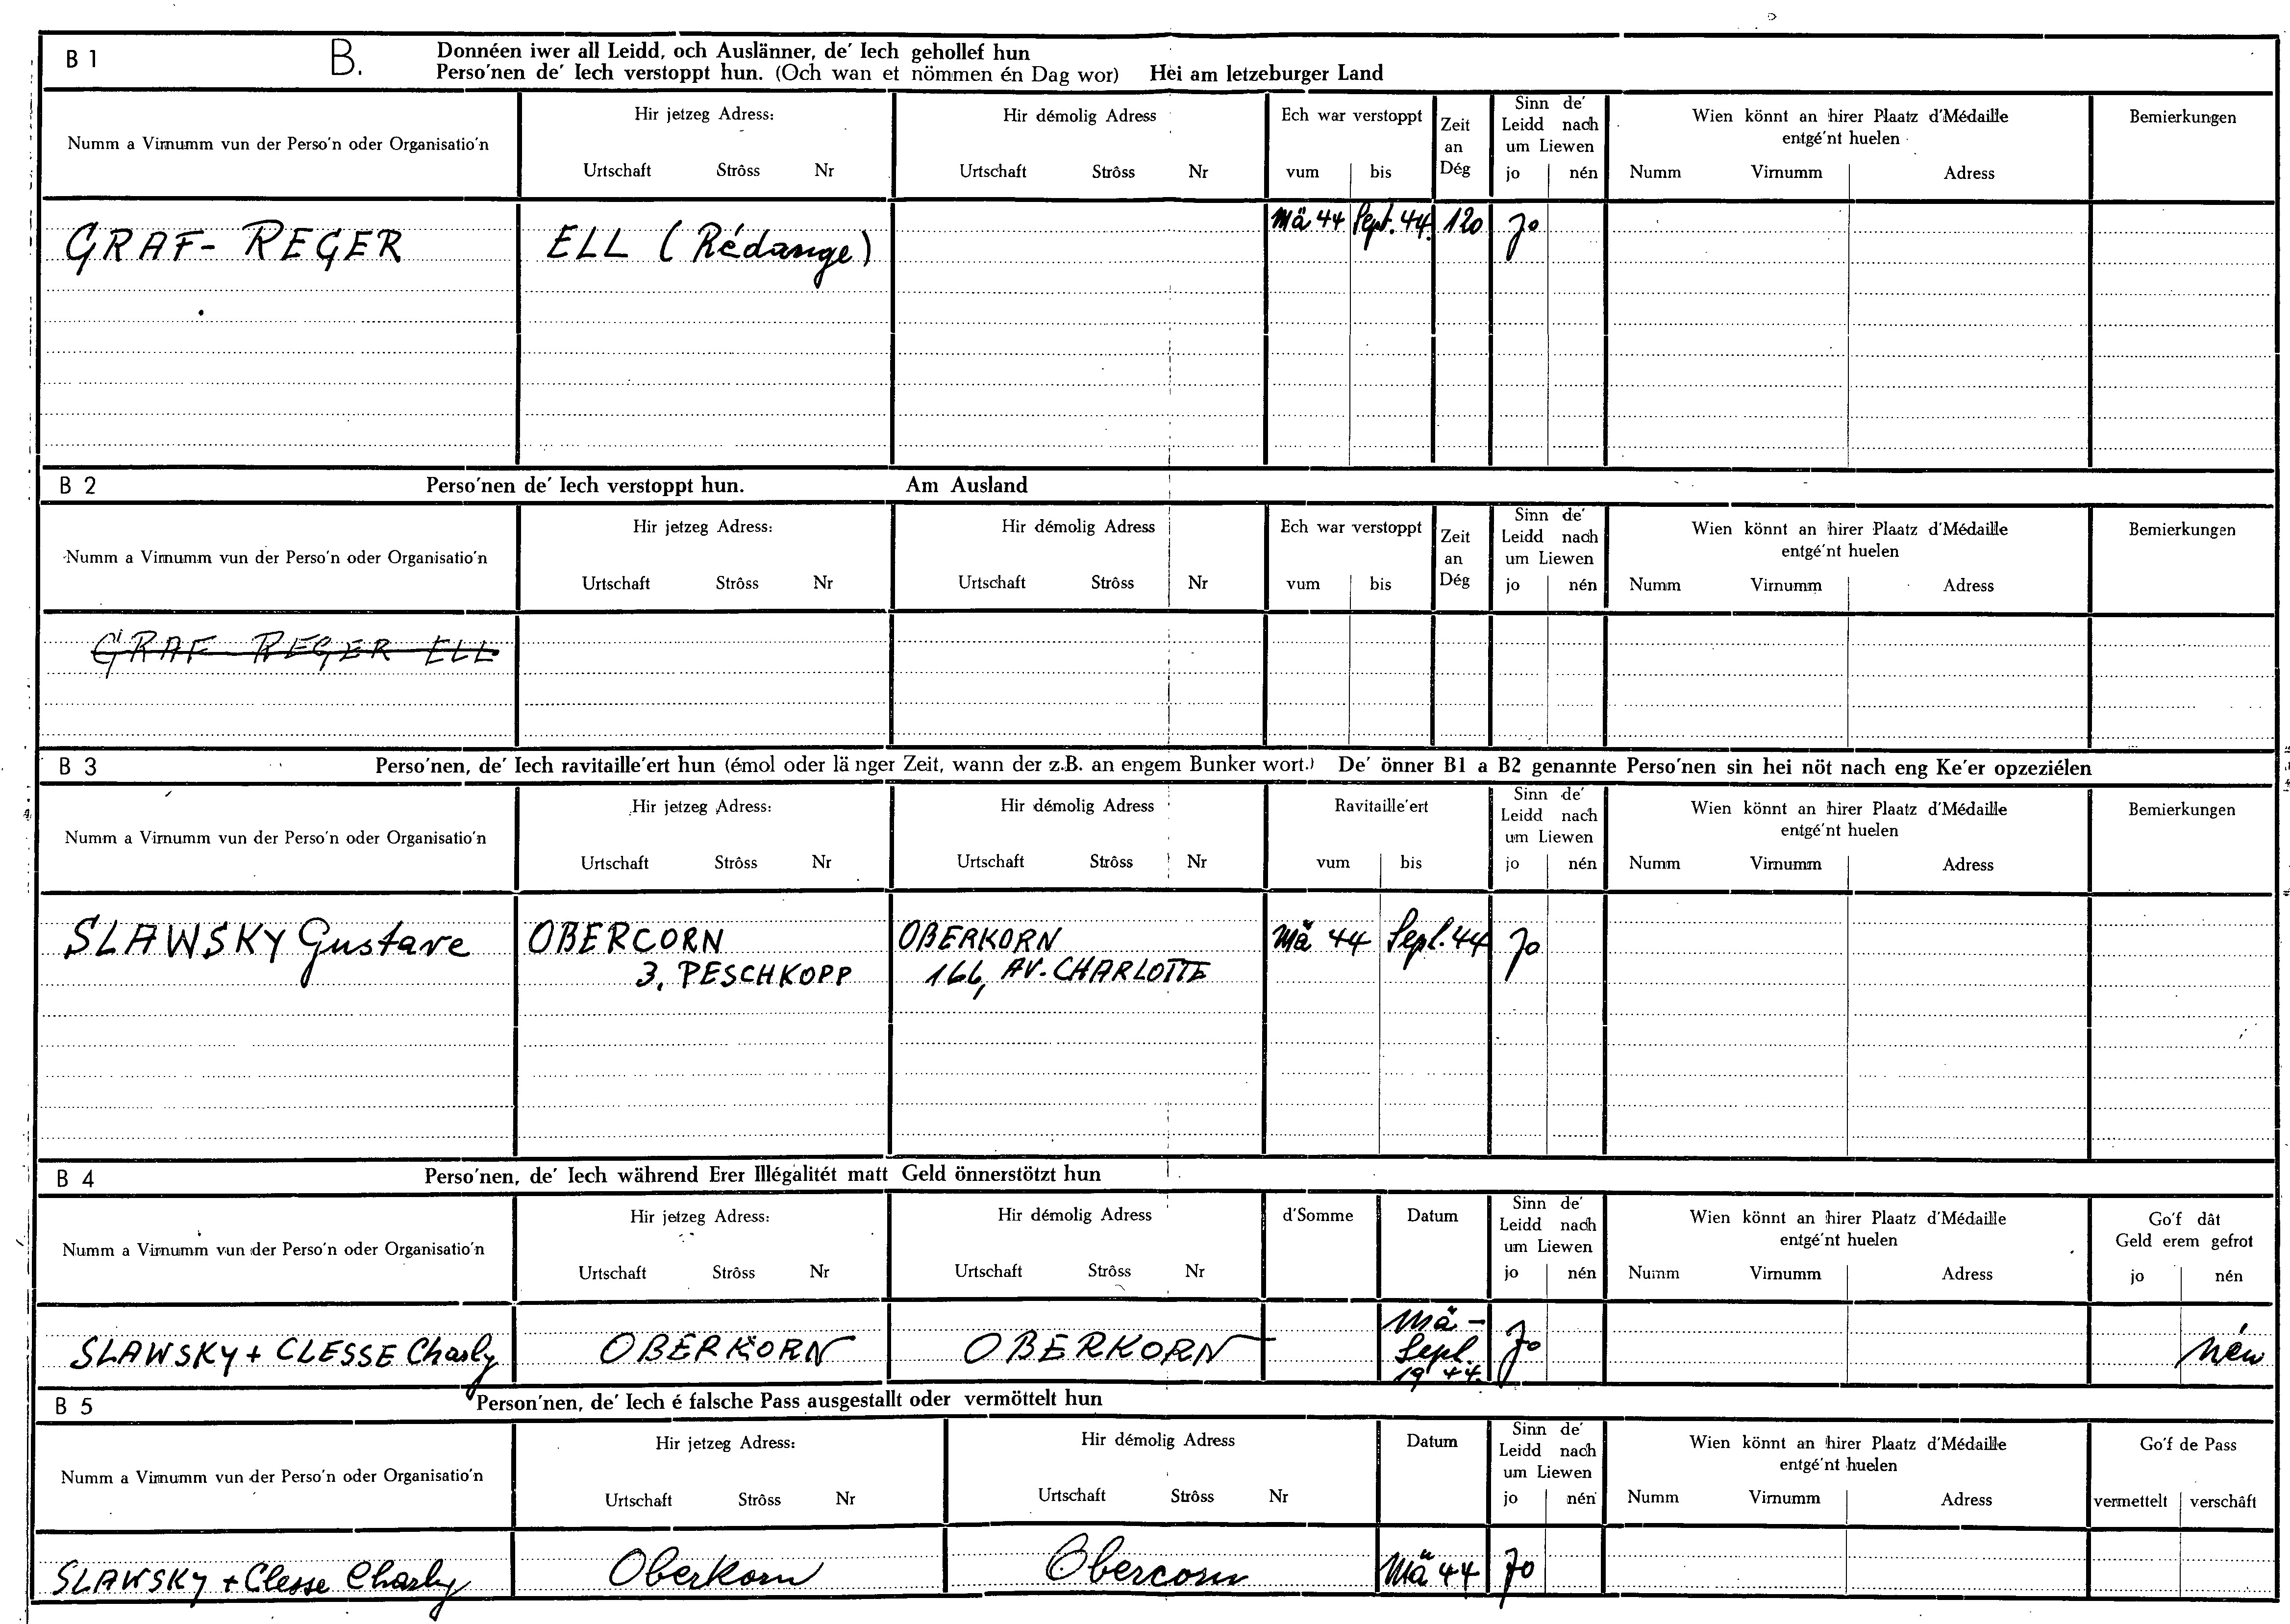 B 1 B. Donnéen iwer all Leidd, och Auslänner, de' Iech gehollef hun
Perso'nen de' Iech verstoppt hun. (Och wan et nömmen én Dag wor) Hei am letzeburger Land
Numm a Virnumm vun der Perso'n oder Organisatio'n
Hir jetzeg Adress:
Urtschaft Strôss Nr
Hir démolig Adress
Urtschaft Strôss Nr
Ech war verstoppt
vum bis
Zeit
an
Dég
Sinn de'
Leidd nach
um Liewen
jo nén
Wien könnt an hirer Plaatz d'Médaille
entgé'nt huelen
Numm Virnumm Adress
Bemierkungen
GRAF-REGER ELL (Rédange) Mä 44 Sept. 44. 120 Jo
B 2 Perso'nen de' Iech verstoppt hun. Am Ausland
Numm a Virnumm vun der Perso'n oder Organisatio'n
Hir jetzeg Adress:
Urtschaft Strôss Nr
Hir démolig Adress
Urtschaft Strôss Nr
Ech war verstoppt
vum bis
Zeit
an
Dég
Sinn de'
Leidd nach
um Liewen
jo nén
Wien könnt an hirer Plaatz d'Médaille
entgé'nt huelen
Numm Virnumm Adress
Bemierkungen
GRAF REGER ELL
B 3 Perso'nen, de' Iech ravitaille'ert hun (émol oder länger Zeit, wann der z.B. an engem Bunker wort.) De' önner B1 a B2 genannte Perso'nen sin hei nöt nach eng Ke'er opzeziélen
Numm a Virnumm vun der Perso'n oder Organisatio'n
Hir jetzeg Adress:
Urtschaft Strôss Nr
Hir démolig Adress
Urtschaft Strôss Nr
Ravitaille'ert
vum bis
Sinn de'
Leidd nach
um Liewen
jo nén
Wien könnt an hirer Plaatz d'Médaille
entgé'nt huelen
Numm Virnumm Adress
Bemierkungen
SLAWSKY Gustave OBERCORN OBERKORN Mä 44 Sept. 44 Jo
3, PESCHKOPP 166, AV. CHARLOTTE
B 4 Perso'nen, de' Iech während Erer Illégalitét matt Geld önnerstötzt hun
Numm a Virnumm vun der Perso'n oder Organisatio'n
Hir jetzeg Adress:
Urtschaft Strôss Nr
Hir démolig Adress
Urtschaft Strôss Nr
d'Somme
Datum
Sinn de'
Leidd nach
um Liewen
jo nén
Wien könnt an hirer Plaatz d'Médaille
entgé'nt huelen
Numm Virnumm Adress
Go'f dât
Geld erem gefrot
jo nén
SLAWSKY + CLESSE Charly OBERKORN OBERKORN
Mä -
Sept.
1944.
Jo
Nén
B 5 Person'nen, de' Iech é falsche Pass ausgestallt oder vermöttelt hun
Numm a Virnumm vun der Perso'n oder Organisatio'n
Hir jetzeg Adress:
Urtschaft Strôss Nr
Hir démolig Adress
Urtschaft Strôss Nr
Datum
Sinn de'
Leidd nach
um Liewen
jo nén
Wien könnt an hirer Plaatz d'Médaille
entgé'nt huelen
Numm Virnumm Adress
Go'f de Pass
vermettelt verschâft
SLAWSKY + Clesse Charly Oberkorn Obercorn Mä 44 Jo